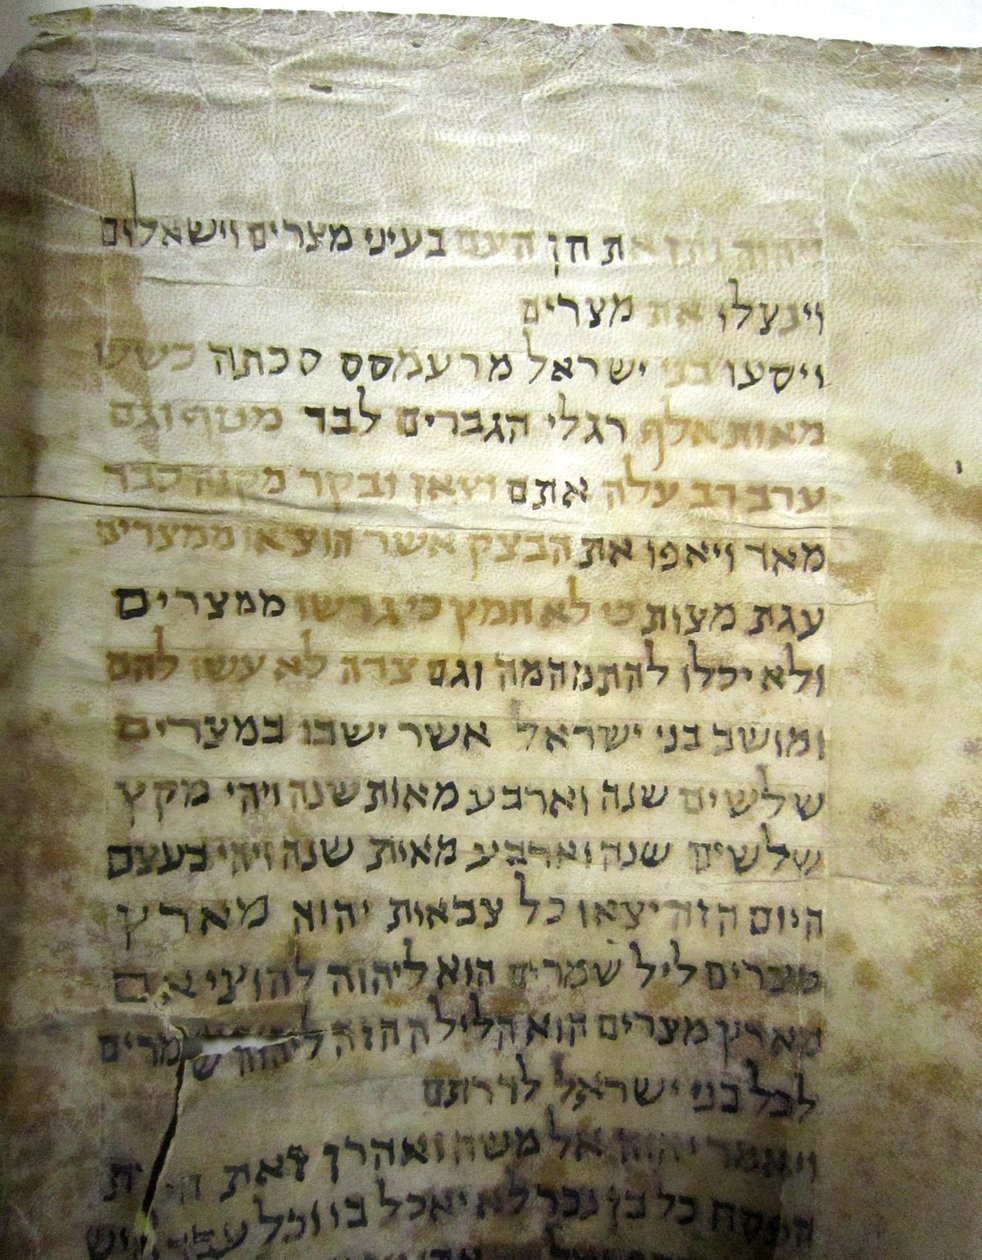 ויהוה נתן את חן העם בעיני מצרים וישאלום
וינצלו את מצרים
ויסעו בני ישראל מרעמסס סכתה כשש
מאות אלף רגלי הגברים לבד מטף וגם
ערב רב עלה אתם וצאן ובקר מקנה כבד
מאד ויאפו את הבצק אשר הוציאו ממצרים
עגת מצות כי לא חמץ כי גרשו ממצרים
ולא יכלו להתמהמה וגם צדה לא עשו להם
ומושב בני ישראל אשר ישבו במצרים
שלשים שנה וארבע מאות שנה ויהי מקץ
שלשים שנה וארבע מאות שנה ויהי בעצם
היום הזה יצאו כל צבאות יהוה מארץ
מצרים ליל שמרים הוא ליהוה להוציאם
מארץ מצרים הוא הלילה הזה ליהוה שמרים
לכל בני ישראל לדרתם
ויאמר יהוה אל משה ואהרן זאת
הפסח כל בן נכר לא יאכל בו וכל עבד איש